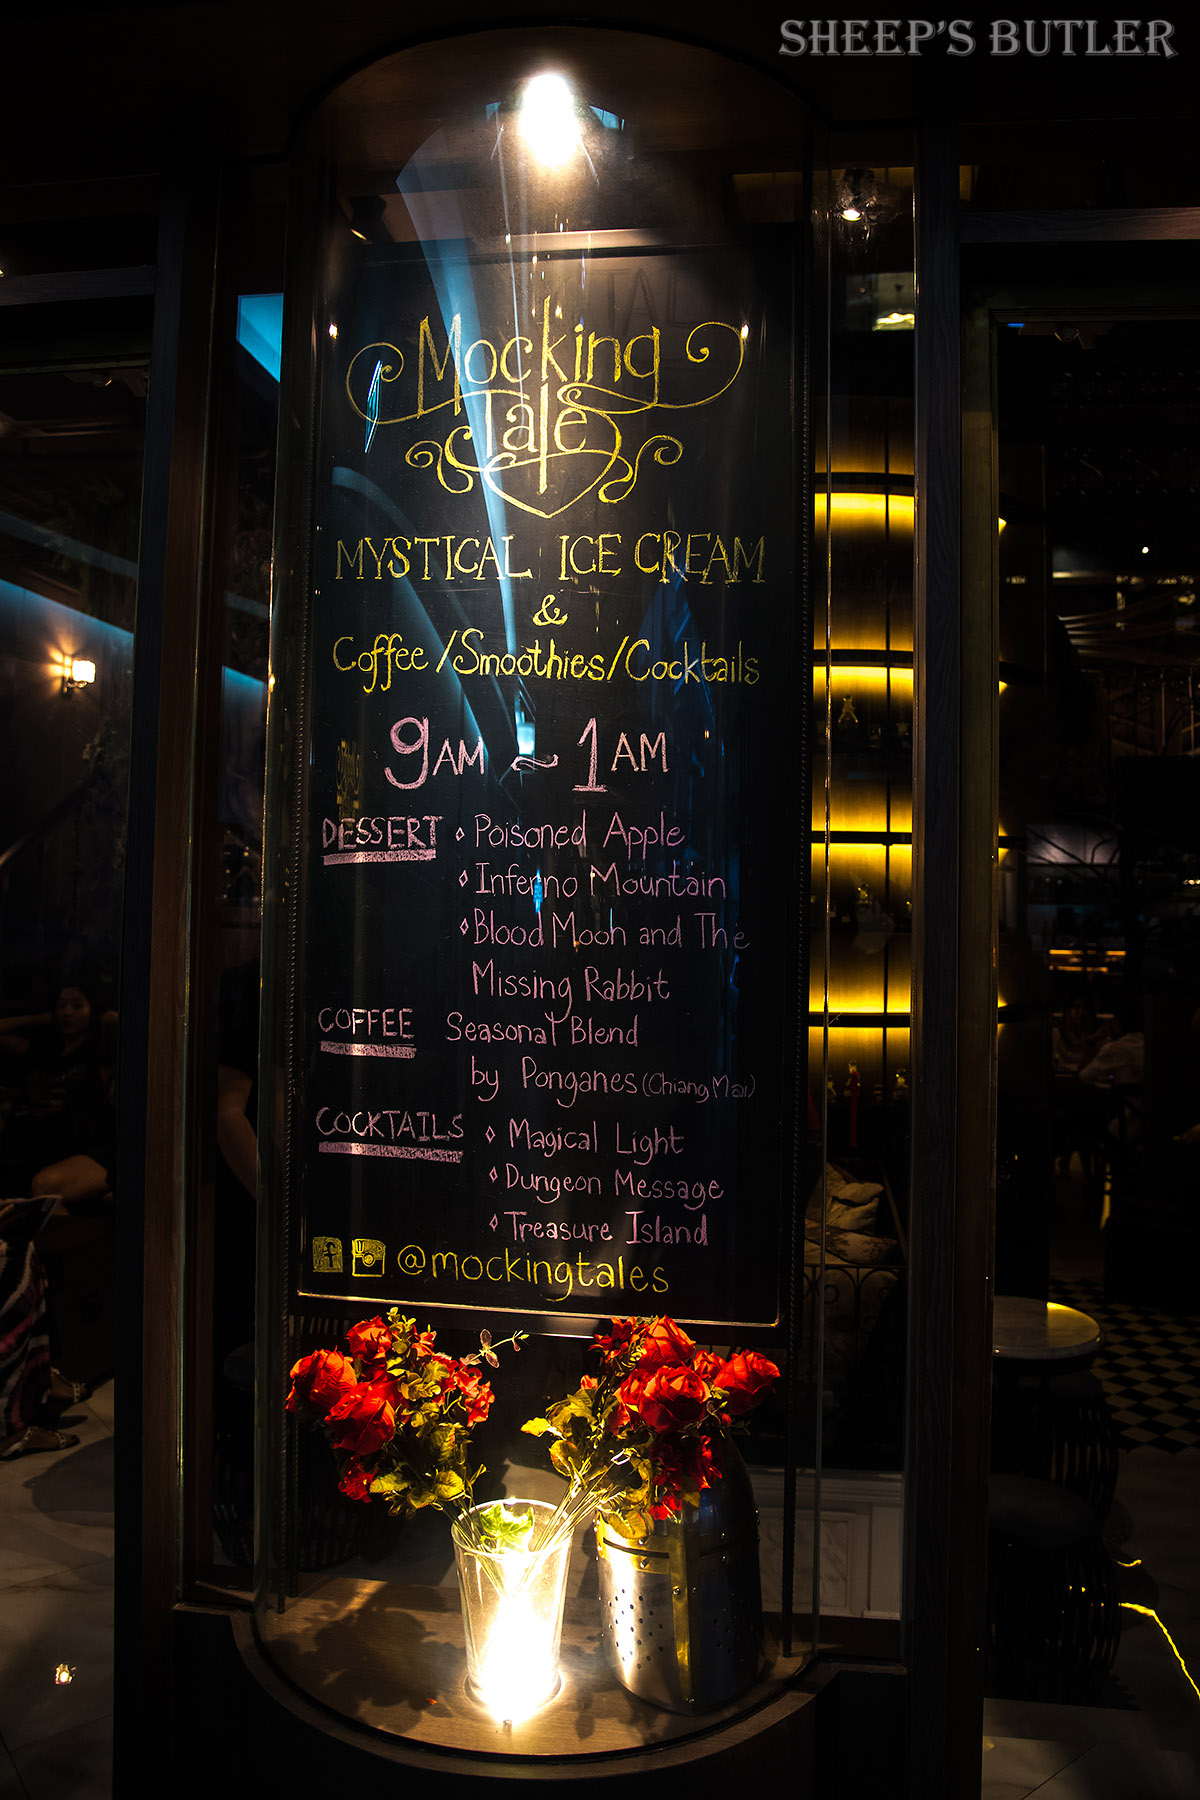 SHEEP'S BUTLER
Mocking
Tale
MYSTICAL ICE CREAM
&
Coffee/Smoothies/Cocktails
9AM ~ 1AM
DESSERT ◊ Poisoned Apple
◊ Inferno Mountain
◊ Blood Moon and The
Missing Rabbit
COFFEE Seasonal Blend
by Ponganes (Chiang Mai)
COCKTAILS ◊ Magical Light
◊ Dungeon Message
◊ Treasure Island
f @mockingtales